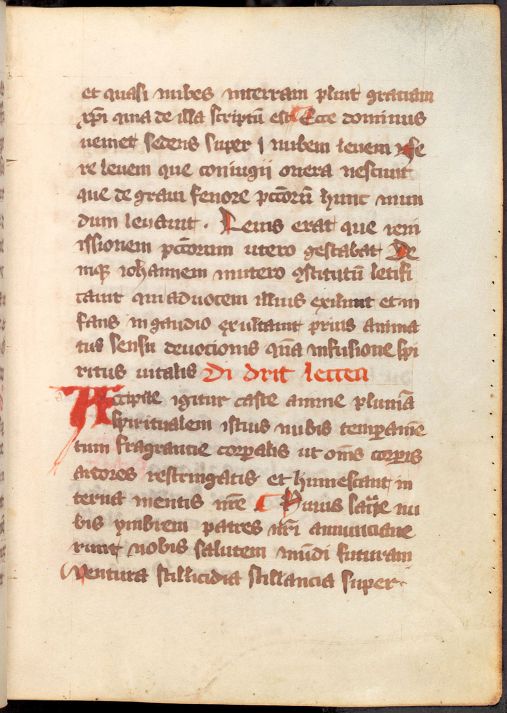 et quasi nubes in terram pluit gratiam
xpi qina de illa scriptū est Ecce dominus
veniet sedens super nubem levem vere
re levem que coniugii onera nescivit
que de gravi fenore pctōrū hunc mun
dum levavit . Levis erat que rem
issionem pctōrum utero gestabat De
niq̄ iohannem in utero ꝯstitutū letifi
cavit qui ad vocem illius exiluit et in
fans in gaudio exultavit prius anima
tus sensu devocionis qm̄ infusione spi
ritus vitalis Di drit letten
Accipite igitur caste anime pluuiā
spiritualem istius nubis temperamē
tum fragrancie corpalis ut om̄s corpis
ardores restringatis et humescant in
terna mentis vr̄e Huius sacre nu
bis ymbrem patres nr̄i annunciave
runt nobis salutem mūdi futuram
ventura stillicidia stillancia super